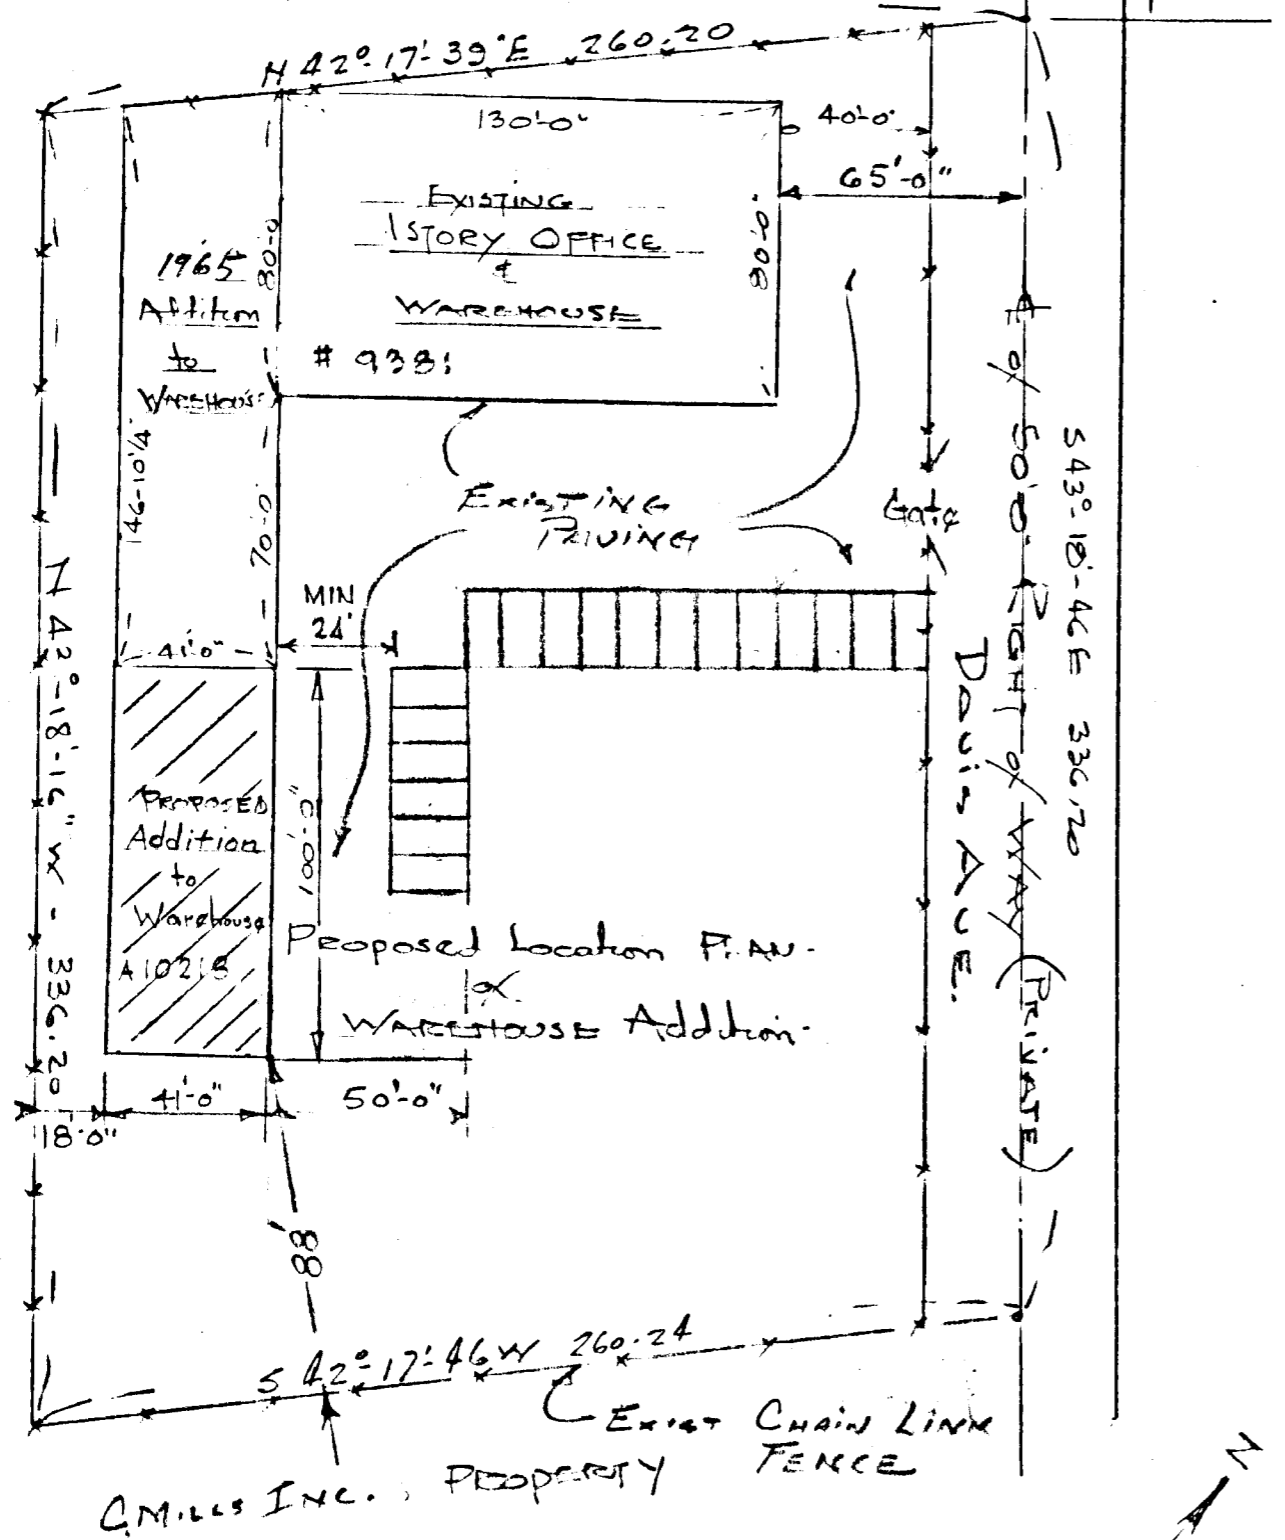 N 42°-17'-39"E 260.20
130'-0"
40'-0"
65'-0"
EXISTING
1 STORY OFFICE
&
WAREHOUSE
# 9381
80'-0"
80'-0
1965
Addition
to
WAREHOUSE
146'-10 1/4"
70'-0
EXISTING
PAVING
Gate
MIN
24'
41'-0"
100'-0"
PROPOSED
Addition
to
Warehouse
A10218
Proposed Location PLAN
of
WAREHOUSE Addition
18'-0"
41'-0"
50'-0"
88'
N 42°-18'-16" W - 336.20
DAVIS AVE.
℄ of 50'-0" RIGHT of WAY (PRIVATE)
S 43°-18'-46 E 336.20
S 42°-17'-46 W 260.24
EXIST CHAIN LINK
FENCE
C.MILLS INC. PROPERTY
N